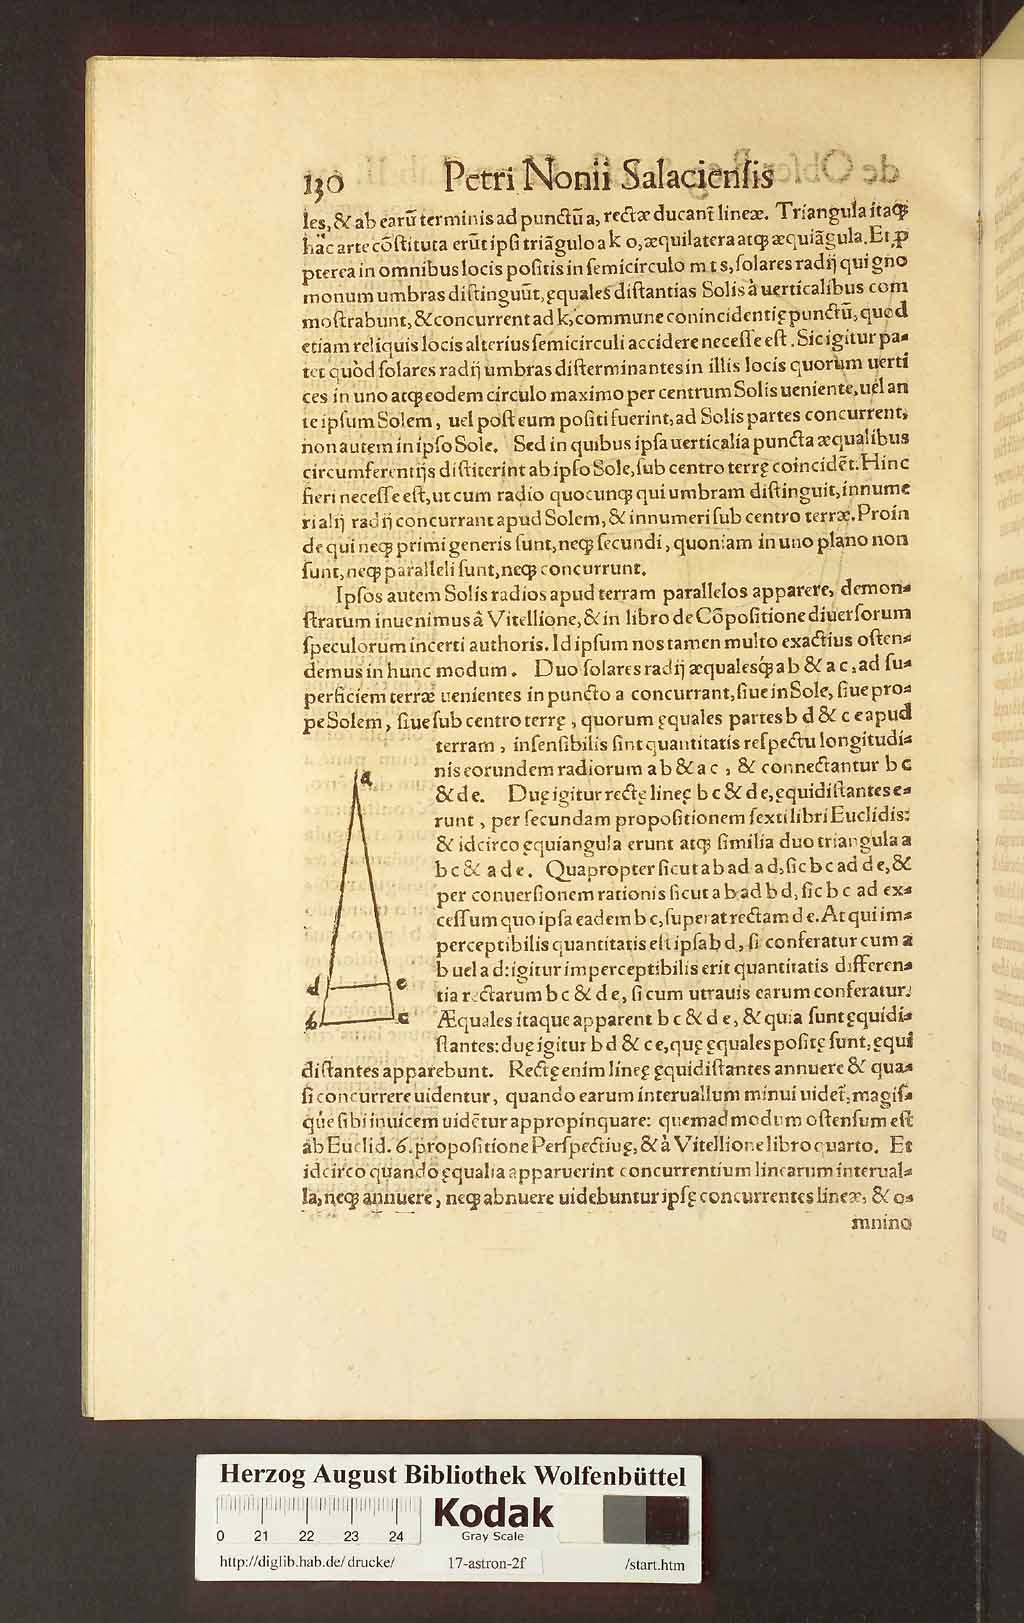 130 Petri Nonii Salaciensis
les, & ab earũ terminis ad punctũ a, rectæ ducant̃ lineæ. Triangula itaq́
hãc arte cõstituta erũt ipsi triãgulo a k o, æquilatera atq́ æquiãgula. Et ꝓ
pterea in omnibus locis positis in semicirculo m t s, solares radij qui gno
monum umbras distinguũt, ęquales distantias Solis à uerticalibus com
mostrabunt, & concurrent ad k, commune conincidentię punctũ, quod
etiam reliquis locis alterius semicirculi accidere necesse est. Sic igitur pa⸗
tet quòd solares radij umbras disterminantes in illis locis quorum uerti
ces in uno atq́ eodem circulo maximo per centrum Solis ueniente, uel an
te ipsum Solem, uel post eum positi fuerint, ad Solis partes concurrent,
non autem in ipso Sole. Sed in quibus ipsa uerticalia puncta æqualibus
circumferentijs distiterint ab ipso Sole, sub centro terrę coincidẽt. Hinc
fieri necesse est, ut cum radio quocunq́ qui umbram distinguit, innume
ri alij radij concurrant apud Solem, & innumeri sub centro terræ. Proin
de qui neq́ primi generis sunt, neq́ secundi, quoniam in uno plano non
sunt, neq́ paralleli sunt, neq́ concurrunt.
Ipsos autem Solis radios apud terram parallelos apparere, demon⸗
stratum inuenimus â Vitellione, & in libro de Cõpositione diuersorum
speculorum incerti authoris. Id ipsum nos tamen multo exactius osten⸗
demus in hunc modum. Duo solares radij æquales q́ a b & a c, ad su⸗
perficiem terræ uenientes in puncto a concurrant, siue in Sole, siue pro⸗
pe Solem, siue sub centro terrę, quorum ęquales partes b d & c e apud
terram, insensibilis sint quantitatis respectu longitudi⸗
nis eorundem radiorum a b & a c, & connectantur b c
& d e. Duę igitur rectę lineę b c & d e, ęquidistantes e⸗
runt, per secundam propositionem sexti libri Euclidis:
& idcirco ęquiangula erunt atq́ similia duo triangula a
b c & a d e. Quapropter sicut a b ad a d, sic b c ad d e, &
per conuersionem rationis sicut a b ad b d, sic b c ad ex⸗
cessum quo ipsa eadem b c, superat rectam d e. At qui im⸗
perceptibilis quantitatis est ipsa b d, si conferatur cum a
b uel a d: igitur imperceptibilis erit quantitatis differen⸗
tia rectarum b c & d e, si cum utrauis earum conferatur.
Æquales itaque apparent b c & d e, & quia sunt ęquidi⸗
stantes: duę igitur b d & c e, quę ęquales positę sunt, ęqui
distantes apparebunt. Rectę enim lineę ęquidistantes annuere & qua⸗
si concurrere uidentur, quando earum interuallum minui uidet̃, magis⸗
q́ue sibi inuicem uidẽtur appropinquare: quemadmodum ostensum est
ab Euclid. 6. propositione Perspectiuę, & à Vitellione libro quarto. Et
idcirco quando ęqualia apparuerint concurrentium linearum interual⸗
la, neq́ annuere, neq́ abnuere uidebuntur ipsę concurrentes lineæ, & o⸗
mnino
a
d e
b c
Herzog August Bibliothek Wolfenbüttel
0 21 22 23 24
Kodak
Gray Scale
http://diglib.hab.de/drucke/ 17-astron-2f /start.htm